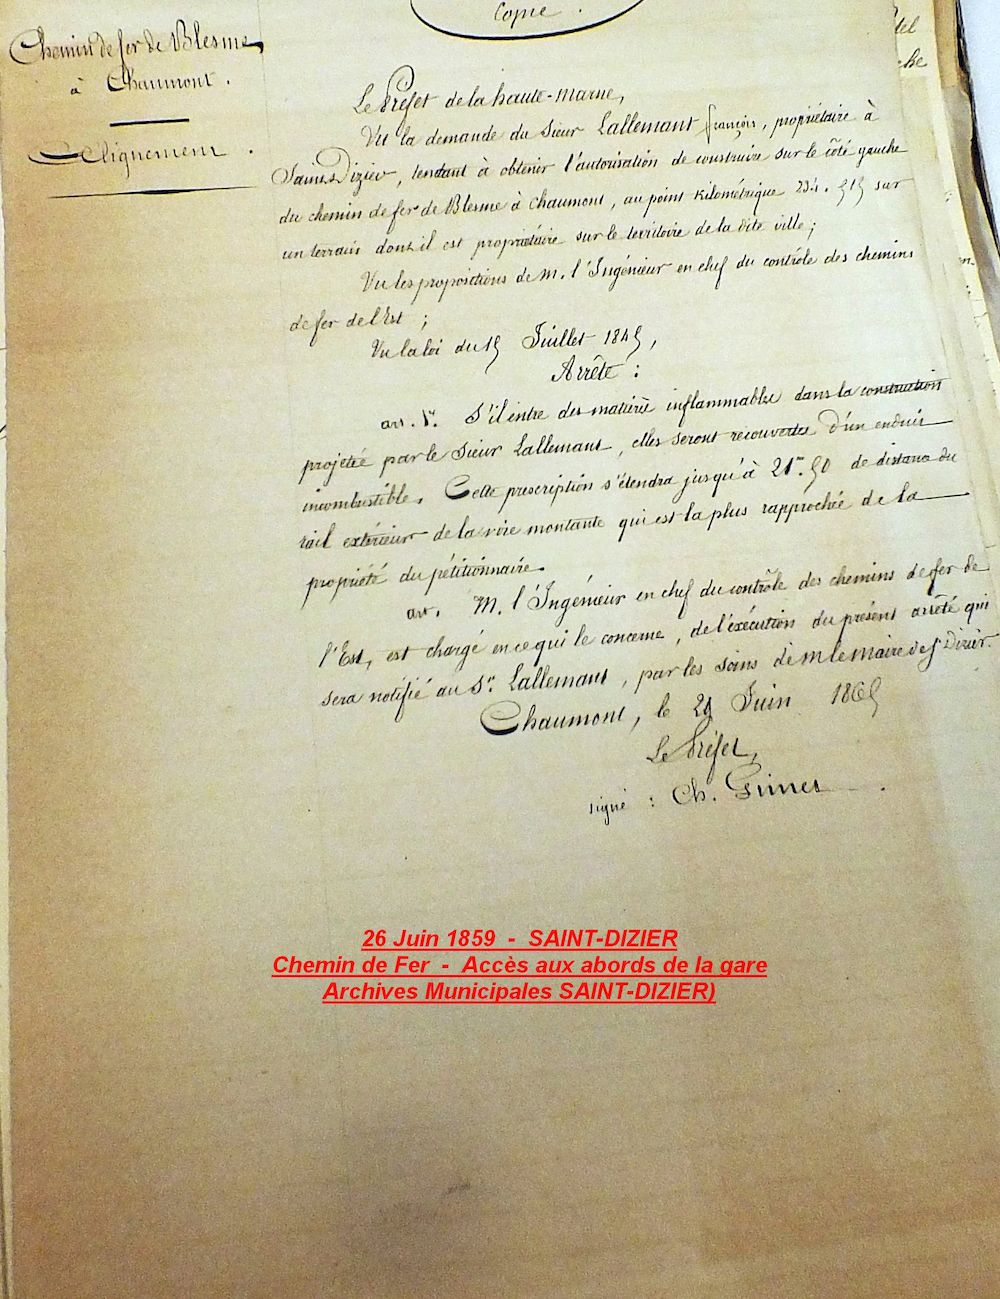 Copie.
Chemin de fer de Blesme
à Chaumont.
Alignement.
Le Préfet de la haute-Marne,
Vu la demande du Sieur Lallemant françois, propriétaire à
Saint Dizier, tendant à obtenir l'autorisation de construire sur le côté gauche
du chemin de fer de Blesme à Chaumont, au point Kilométrique 234.515 sur
un terrain dont il est propriétaire sur le territoire de la dite ville;
Vu les propositions de M. l'Ingénieur en chef du contrôle des chemins
de fer de l'Est;
Vu la loi du 15 Juillet 1845,
Arrête:
art. 1er. S'il entre des matières inflammables dans la construction
projetée par le Sieur Lallemant, elles seront recouvertes d'un enduit
incombustible. Cette prescription s'étendra jusqu'à 21m.50 de distance du
rail extérieur de la voie montante qui est la plus rapprochée de la
propriété du pétitionnaire.
art. M. l'Ingénieur en chef du contrôle des chemins de fer de
l'Est, est chargé en ce qui le concerne, de l'exécution du présent arrêté qui
sera notifié au Sr. Lallemant, par les soins de M le maire de St Dizier.
Chaumont, le Juin 1865
Le Préfet,
signé: Ch.
26 Juin 1859 - SAINT-DIZIER
Chemin de Fer - Accès aux abords de la gare
Archives Municipales SAINT-DIZIER)